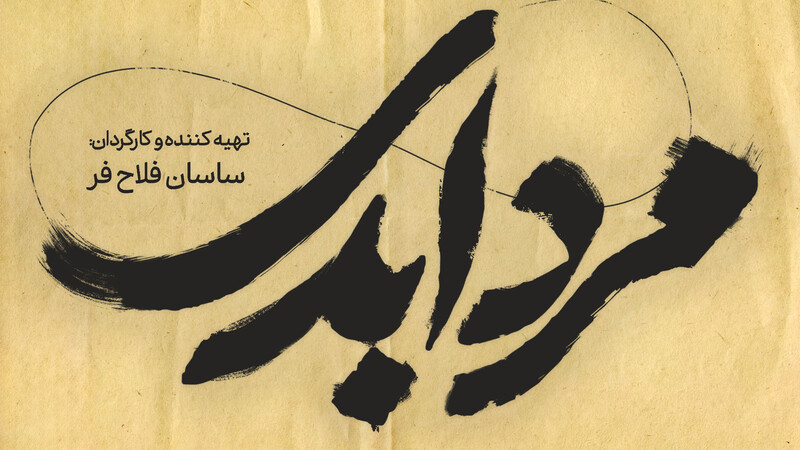 مرد ابدی
تهیه کننده و کارگردان:
ساسان فلاح فر